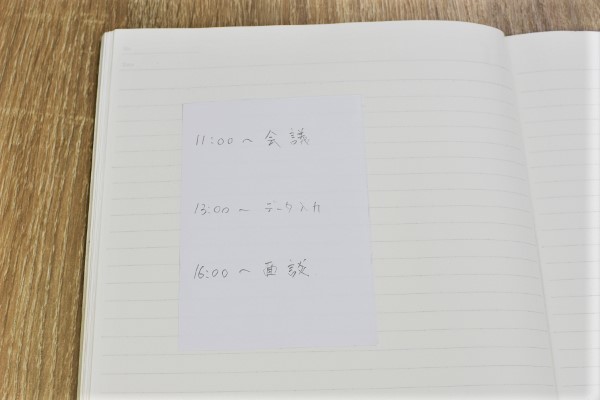 11:00〜 会議
13:00〜 データ入力
16:00〜 面談